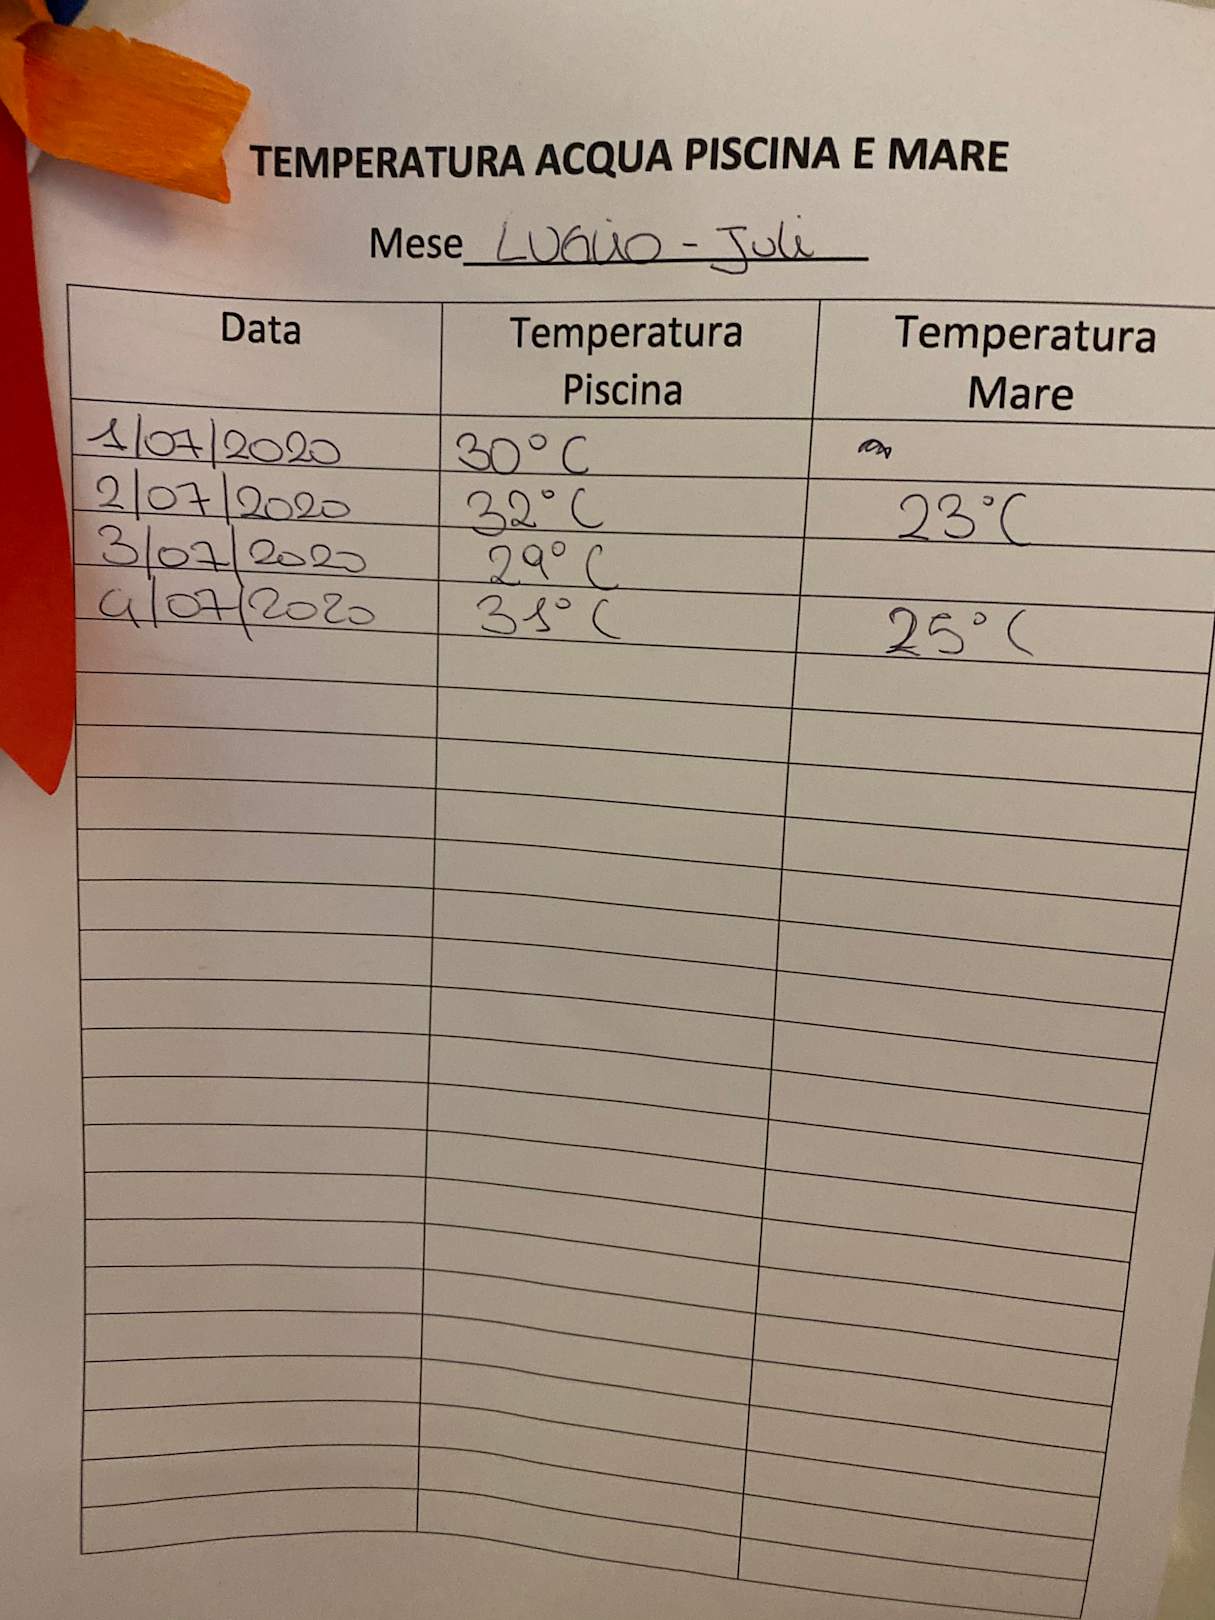 TEMPERATURA ACQUA PISCINA E MARE
Mese LUGLIO - Juli
Data Temperatura Piscina Temperatura Mare
1/07/2020 30°C
2/07/2020 32°C 23°C
3/07/2020 29°C
4/07/2020 31°C 25°C